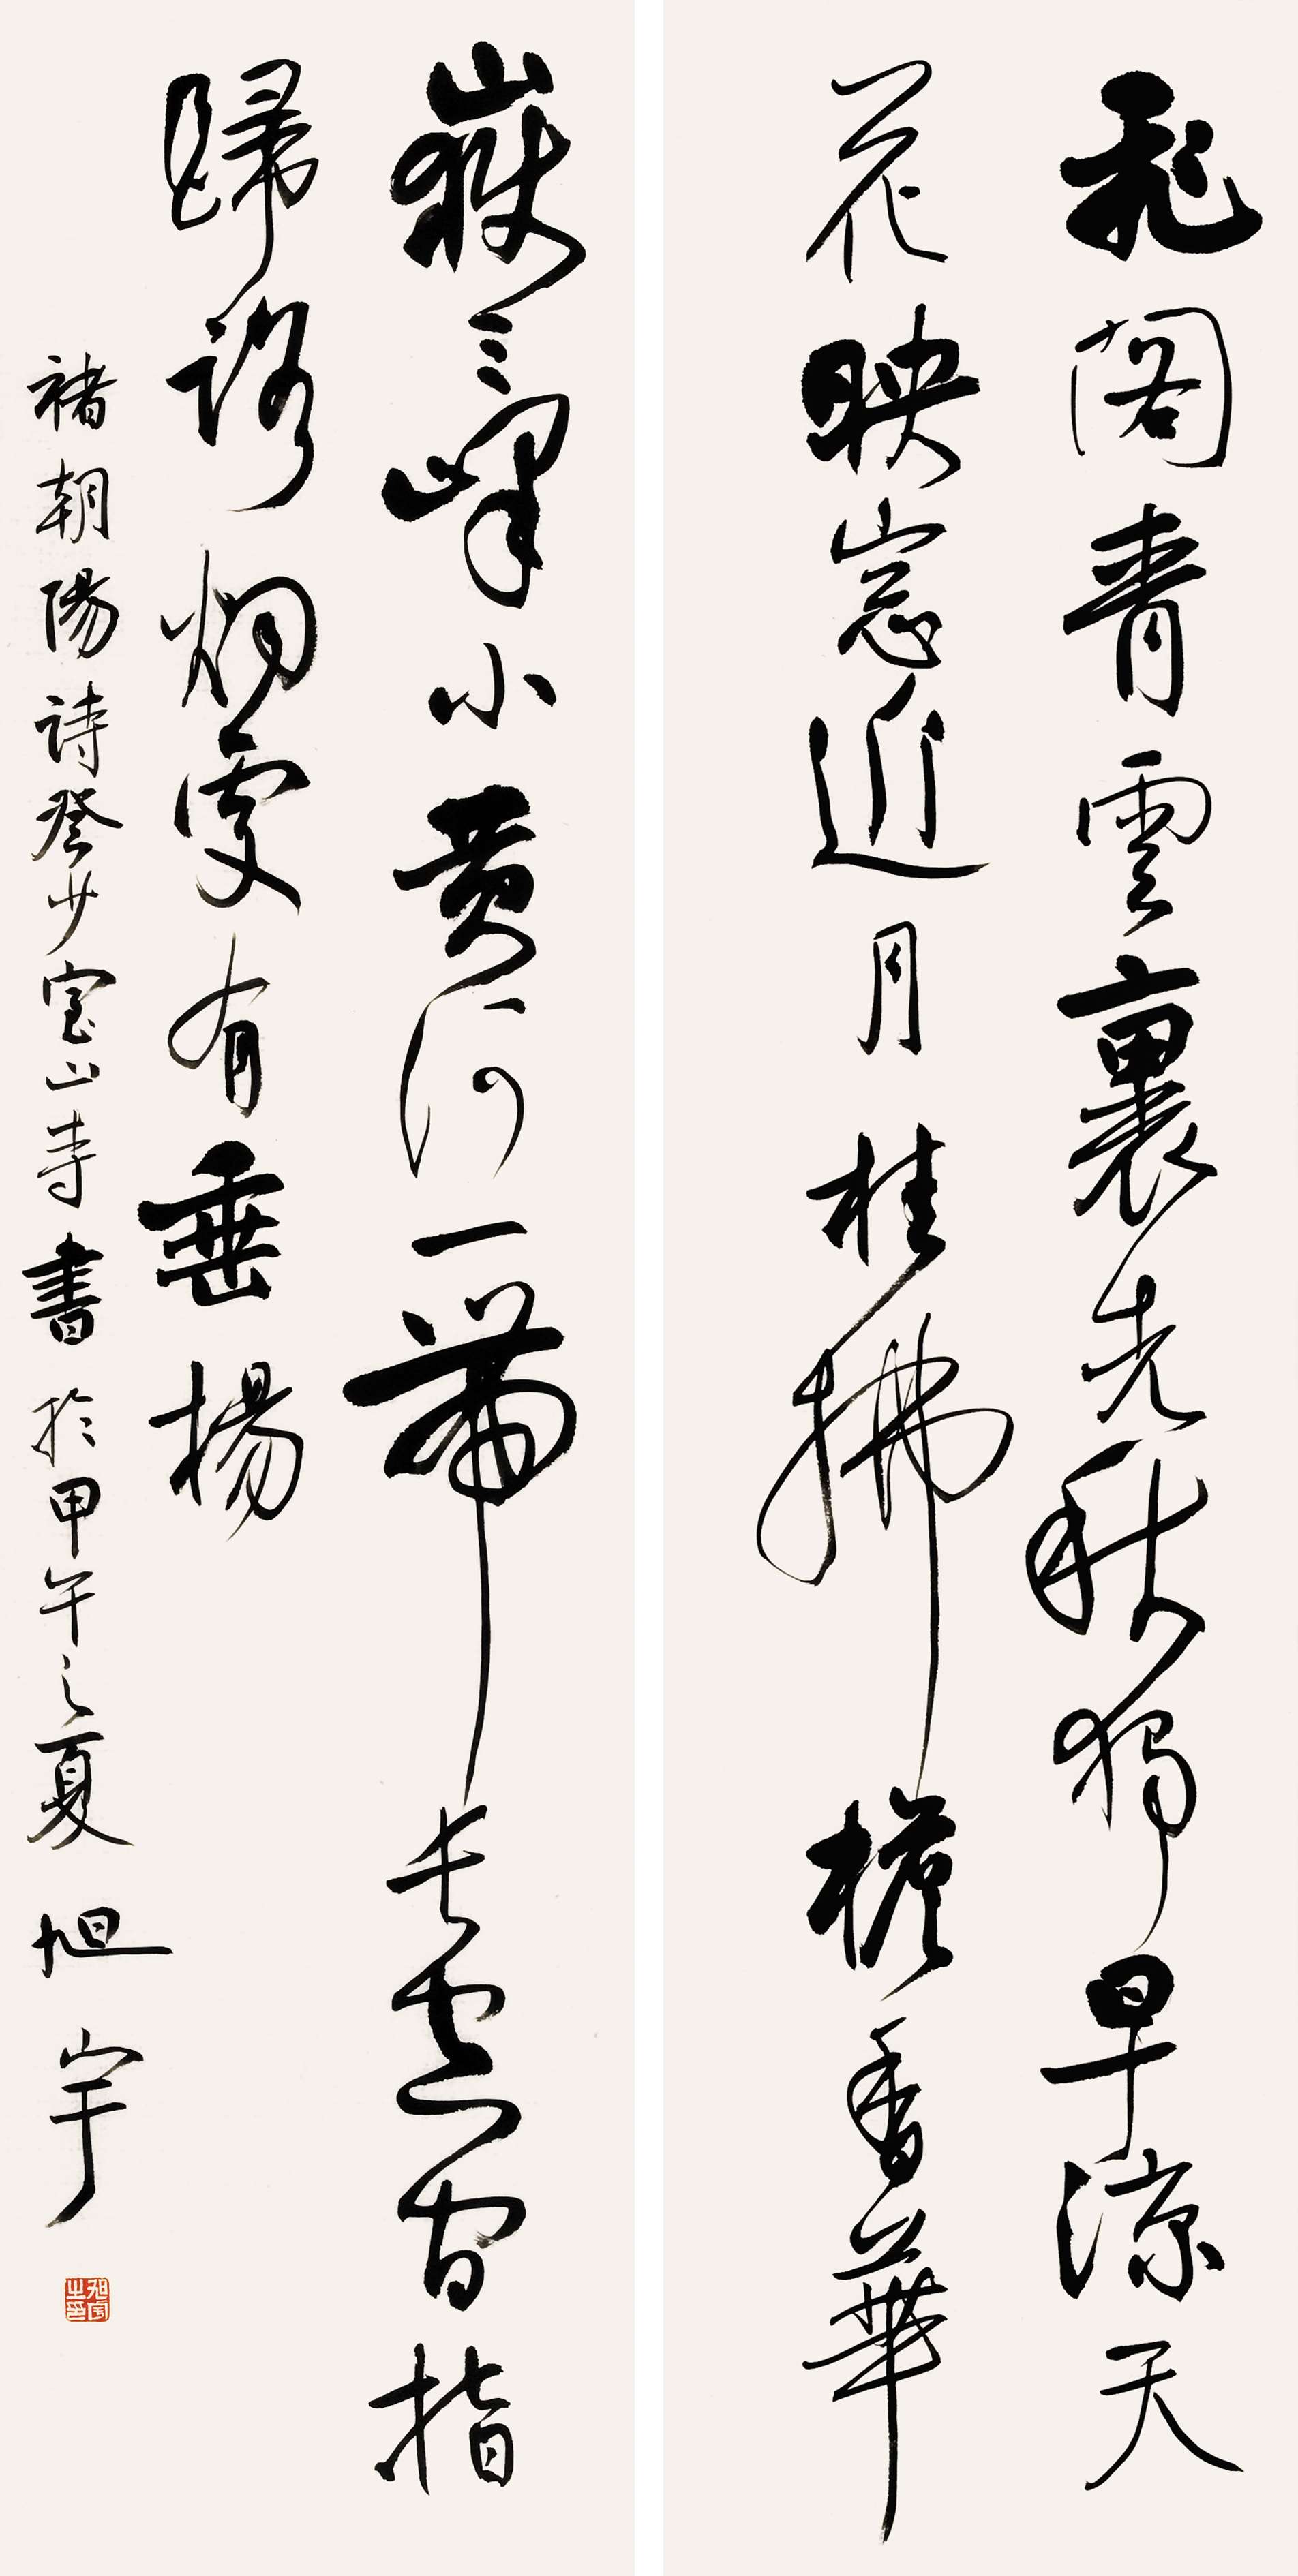 飛閣青雲裏先秋獨早涼天
花映窓近月桂拂檐香華
嶽三峰小黄河一帶長空間指
歸路烟處有垂楊
褚朝陽詩登少室山寺書於甲午之夏旭宇
旭宇之印